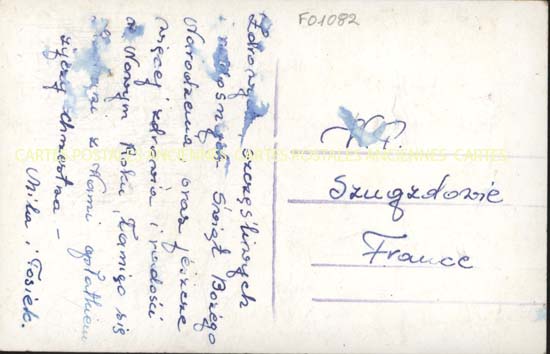 F01082
Zdrowych szczęśliwych
i radosnych Świąt Bożego
Narodzenia oraz jeszcze
więcej zdrowia i radości
w Nowym Roku, Łamiąc się
z Wami opłatkiem
życzy chrzestna -
Mila i Tosiek.
P.P.
Szugzdowie
France
CARTES POSTALES ANCIENNES CARTES POSTALES ANCIENNES CARTES